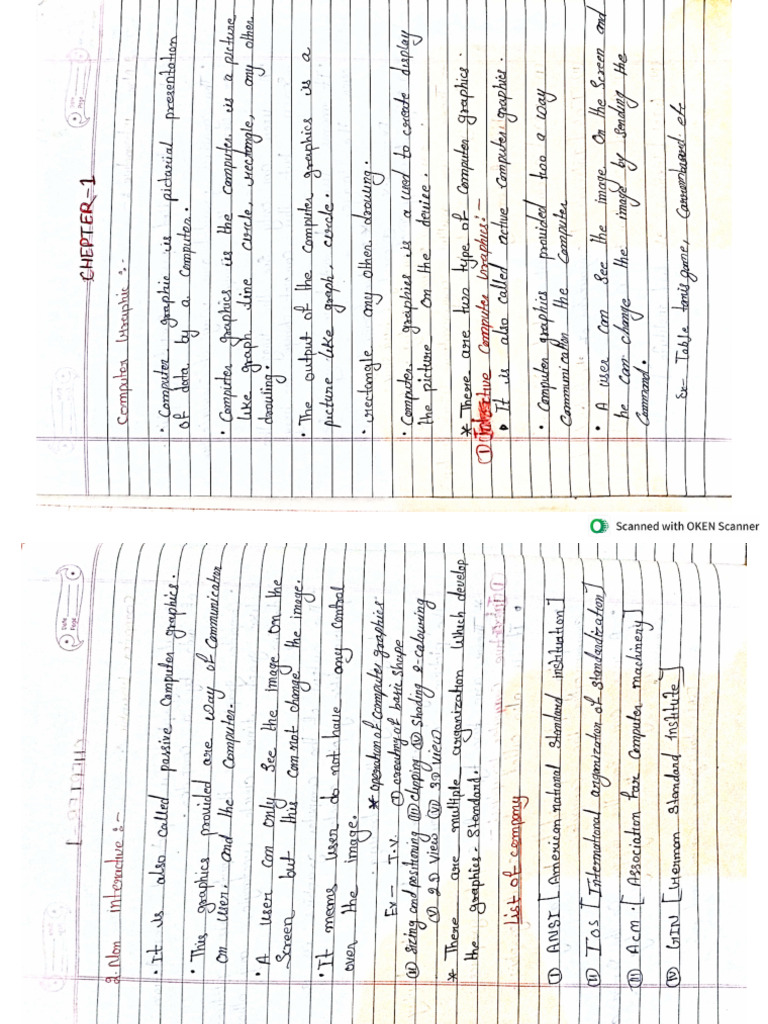 CHEPTER-1
Computer Graphic :-
• Computer graphic is pictorial presentation
of data by a Computer.
• Computer graphics is the computer is a picture
like graph line circle, rectangle, any other
drawing.
• The output of the computer graphics is a
picture like graph, circle.
• rectangle any other drawing.
• Computer graphics is a used to create display
the picture on the device.
* There are two type of Computer graphics.
① Interactive Computer Graphics:-
• It is also called active computer graphics.
• Computer graphics provided two a way
Communication the Computer
• A user can see the image on the screen and
he can change the image by sending the
Command.
Ex- Table
Scanned with OKEN Scanner
Date
Page
2. Non interactive :-
• It is also called passive Computer graphics.
• This graphics provided are way of Communication
on user, and the Computer.
• A user can only see the image on the
Screen but this can not change the image.
• It means user do not have any control
over the image.
Ex- T.V.
* operation of computer graphics
① creating of basic shape
② sizing and positioning ③ clipping ④ shading & colouring
⑤ 2D view ⑥ 3D view
* There are multiple organization which develop
the graphics - Standard.
List of company
① ANSI [American national Standard instituation]
② IOS [International organization of standardization]
③ ACM. [Association for Computer machinery]
④ GIN [German Standard Institute]